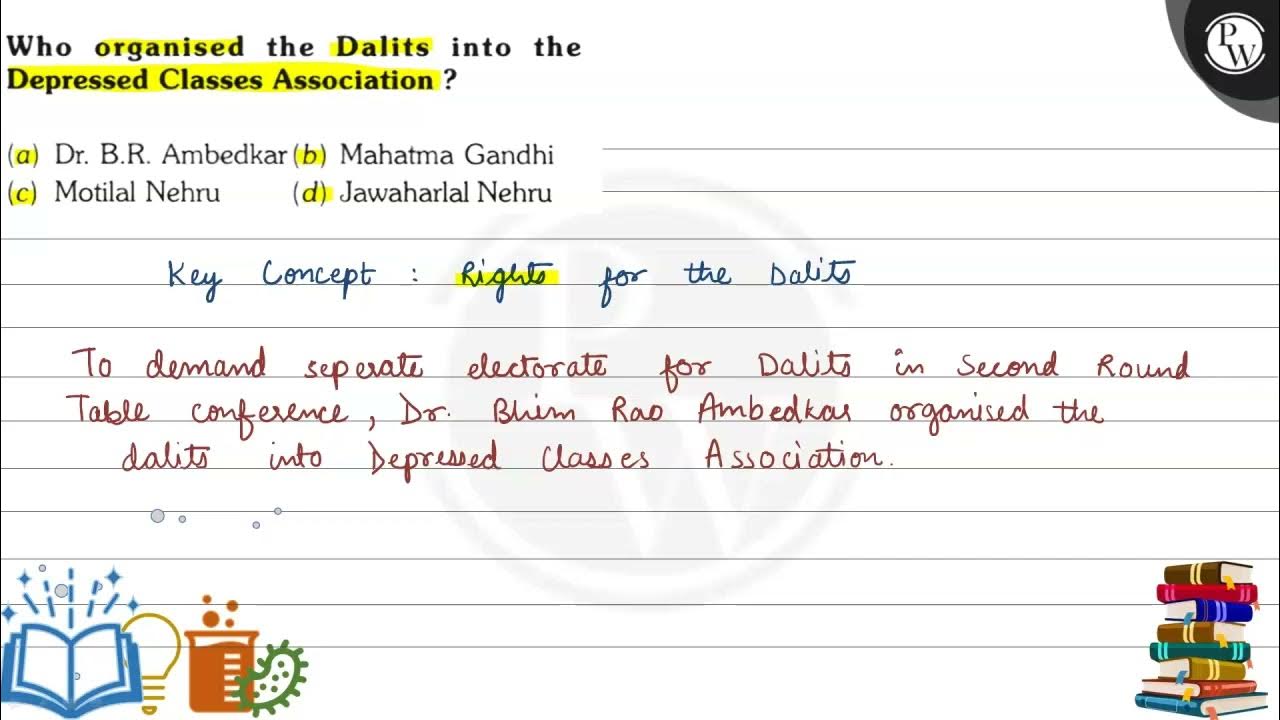 Who organised the Dalits into the
Depressed Classes Association ?
(a) Dr. B.R. Ambedkar (b) Mahatma Gandhi
(c) Motilal Nehru (d) Jawaharlal Nehru
Key Concept : Rights for the Dalits
To demand seperate electorate for Dalits in Second Round
Table conference, Dr. Bhim Rao Ambedkar organised the
dalits into Depressed Classes Association.
PW